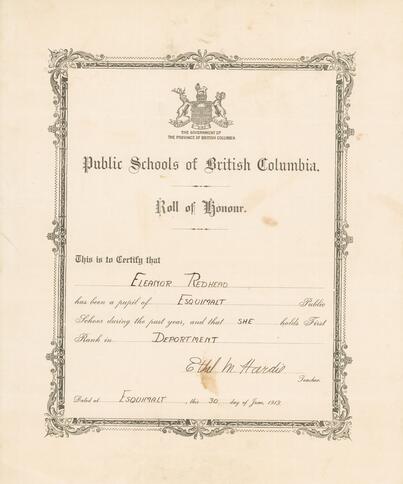 THE GOVERNMENT OF
THE PROVINCE OF BRITISH COLUMBIA
Public Schools of British Columbia.
Roll of Honour.
This is to Certify that
ELEANOR REDHEAD
has been a pupil of ESQUIMALT Public
School during the past year, and that SHE holds First
Rank in DEPORTMENT
Ethel M. Hardie
Teacher.
Dated at ESQUIMALT, this 30 day of June, 1913.